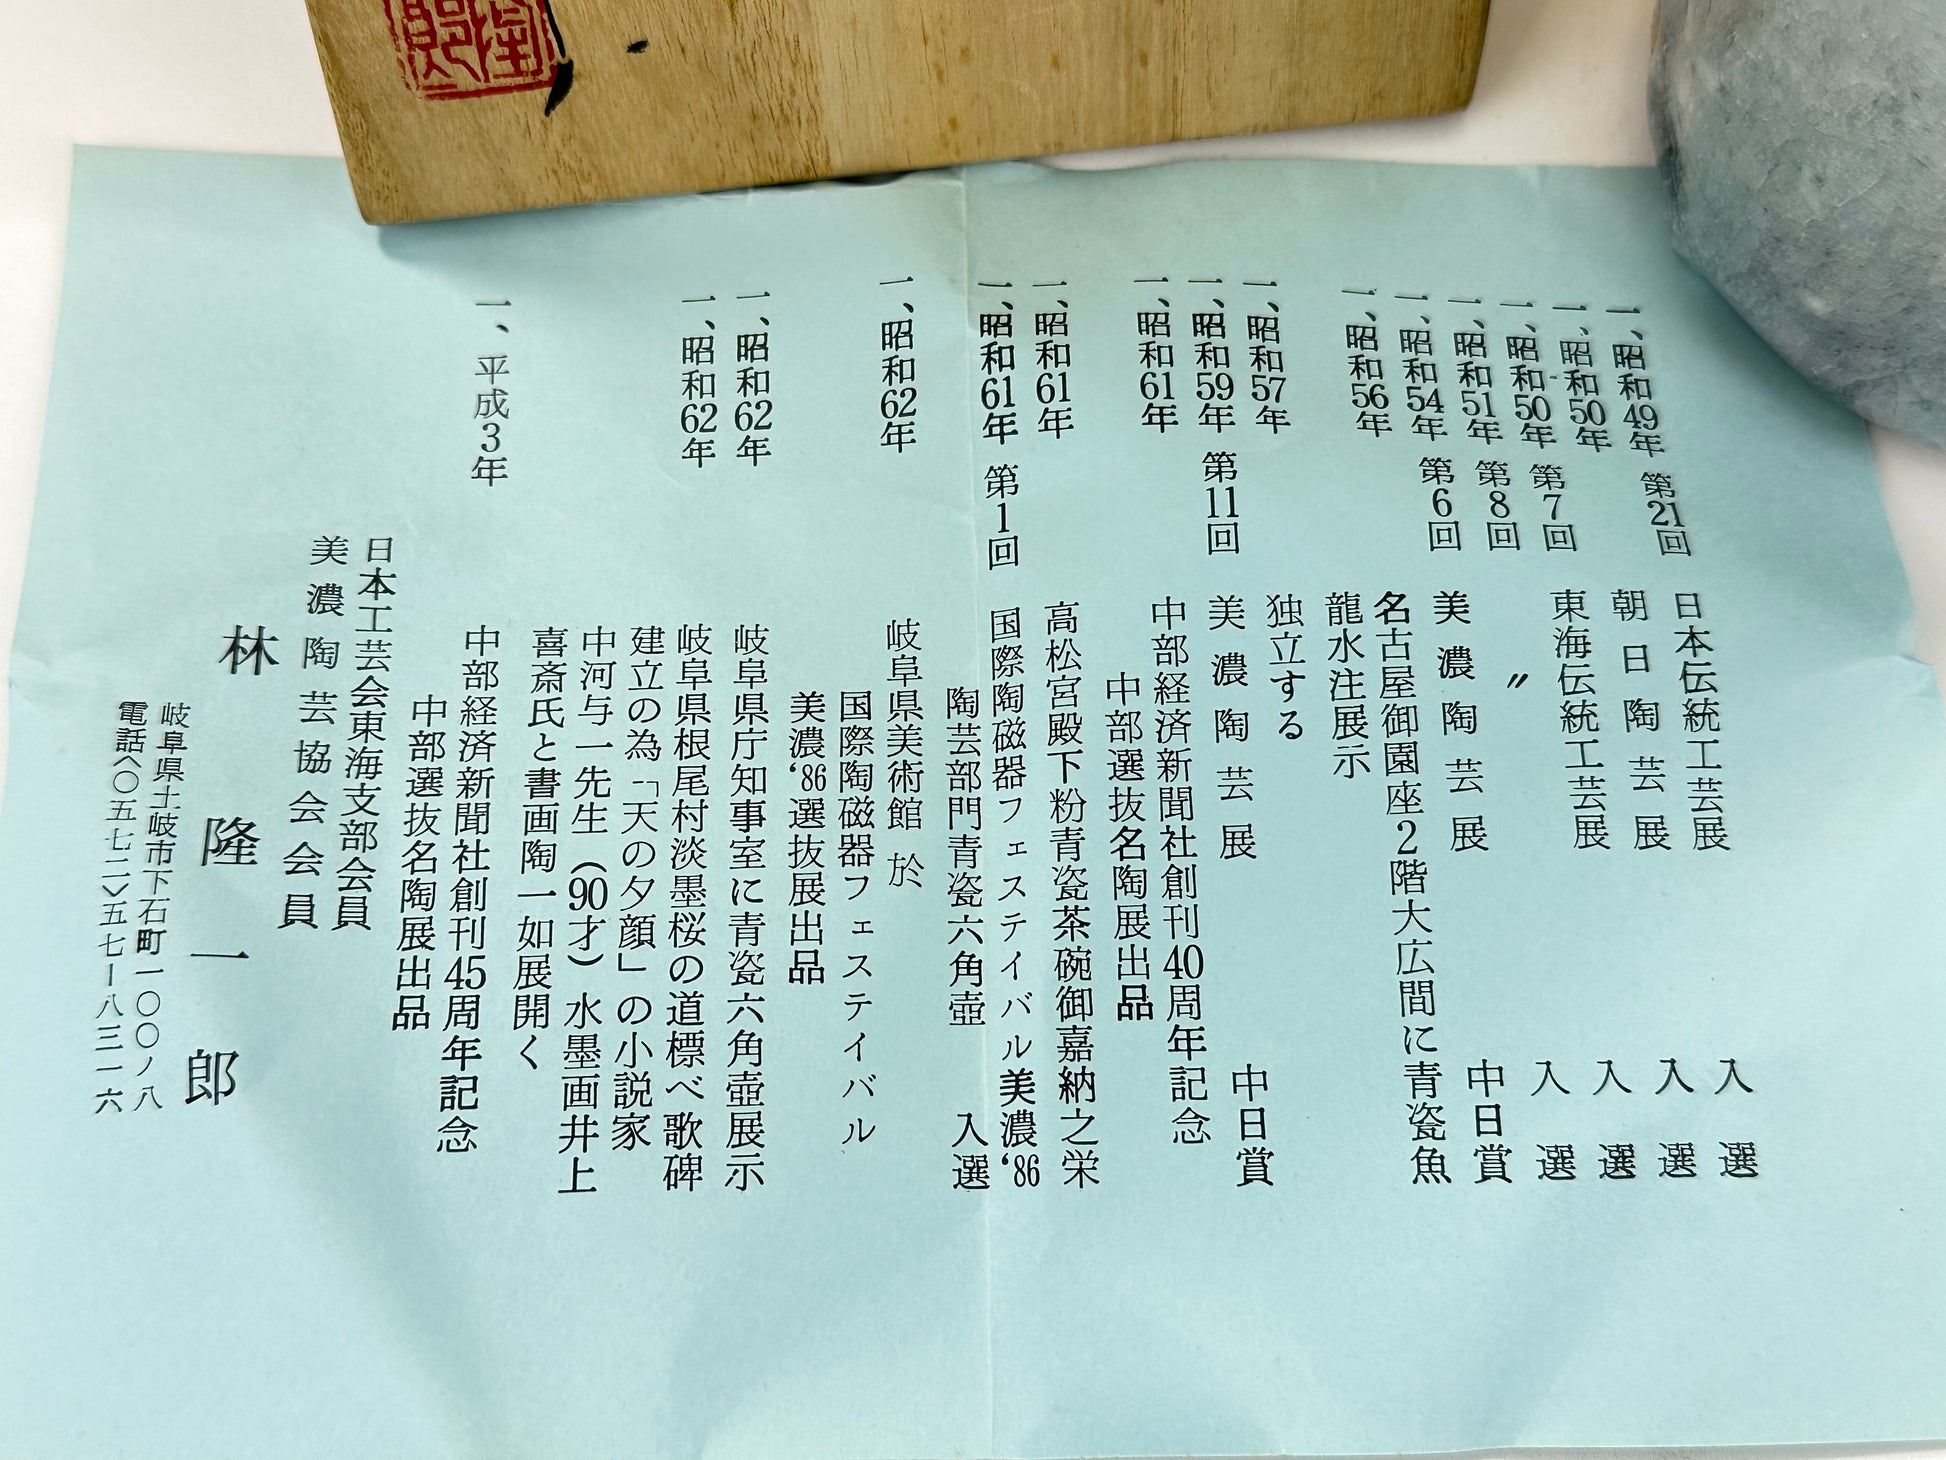 一、昭和49年 第21回 日本伝統工芸展 入選
一、昭和50年 朝日陶芸展 入選
一、昭和50年 第7回 東海伝統工芸展 入選
一、昭和51年 第8回 〃 入選
一、昭和54年 第6回 美濃陶芸展 中日賞
一、昭和56年 名古屋御園座2階大広間に青瓷魚
龍水注展示
一、昭和57年 独立する
一、昭和59年 第11回 美濃陶芸展 中日賞
一、昭和61年 中部経済新聞社創刊40周年記念
中部選抜名陶展出品
一、昭和61年 高松宮殿下粉青瓷茶碗御嘉納之栄
一、昭和61年 第1回 国際陶磁器フェスティバル美濃'86
陶芸部門青瓷六角壺 入選
一、昭和62年 岐阜県美術館 於
国際陶磁器フェスティバル
美濃'86選抜展出品
一、昭和62年 岐阜県庁知事室に青瓷六角壺展示
一、昭和62年 岐阜県根尾村淡墨桜の道標べ歌碑
建立の為「天の夕顔」の小説家
中河与一先生（90才）水墨画井上
喜斎氏と書画陶一如展開く
一、平成3年 中部経済新聞社創刊45周年記念
中部選抜名陶展出品
日本工芸会東海支部会員
美濃陶芸協会会員
林隆一郎
岐阜県土岐市下石町一〇〇ノ八
電話〈〇五七二〉五七ー八三一六